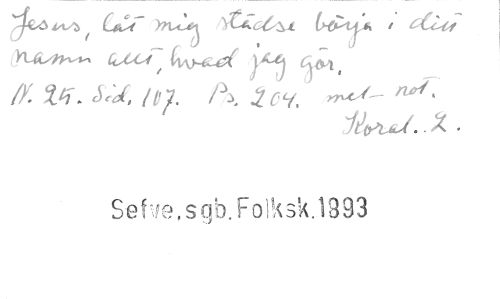 Jesus, låt mig städse börja i ditt
namn allt, hvad jag gör.
N. 25. Sid. 107. Ps. 204. met not.
Koral. 2.
Sefve, sgb. Folksk. 1893